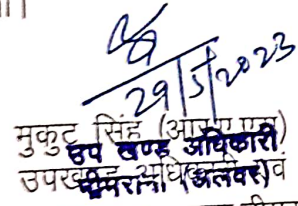 29/5/2023
मुकुट सिंह (आर.ए.एस)
उप खण्ड अधिकारी
उपखण्ड अधिकारी एवं
नीमराना (अलवर)